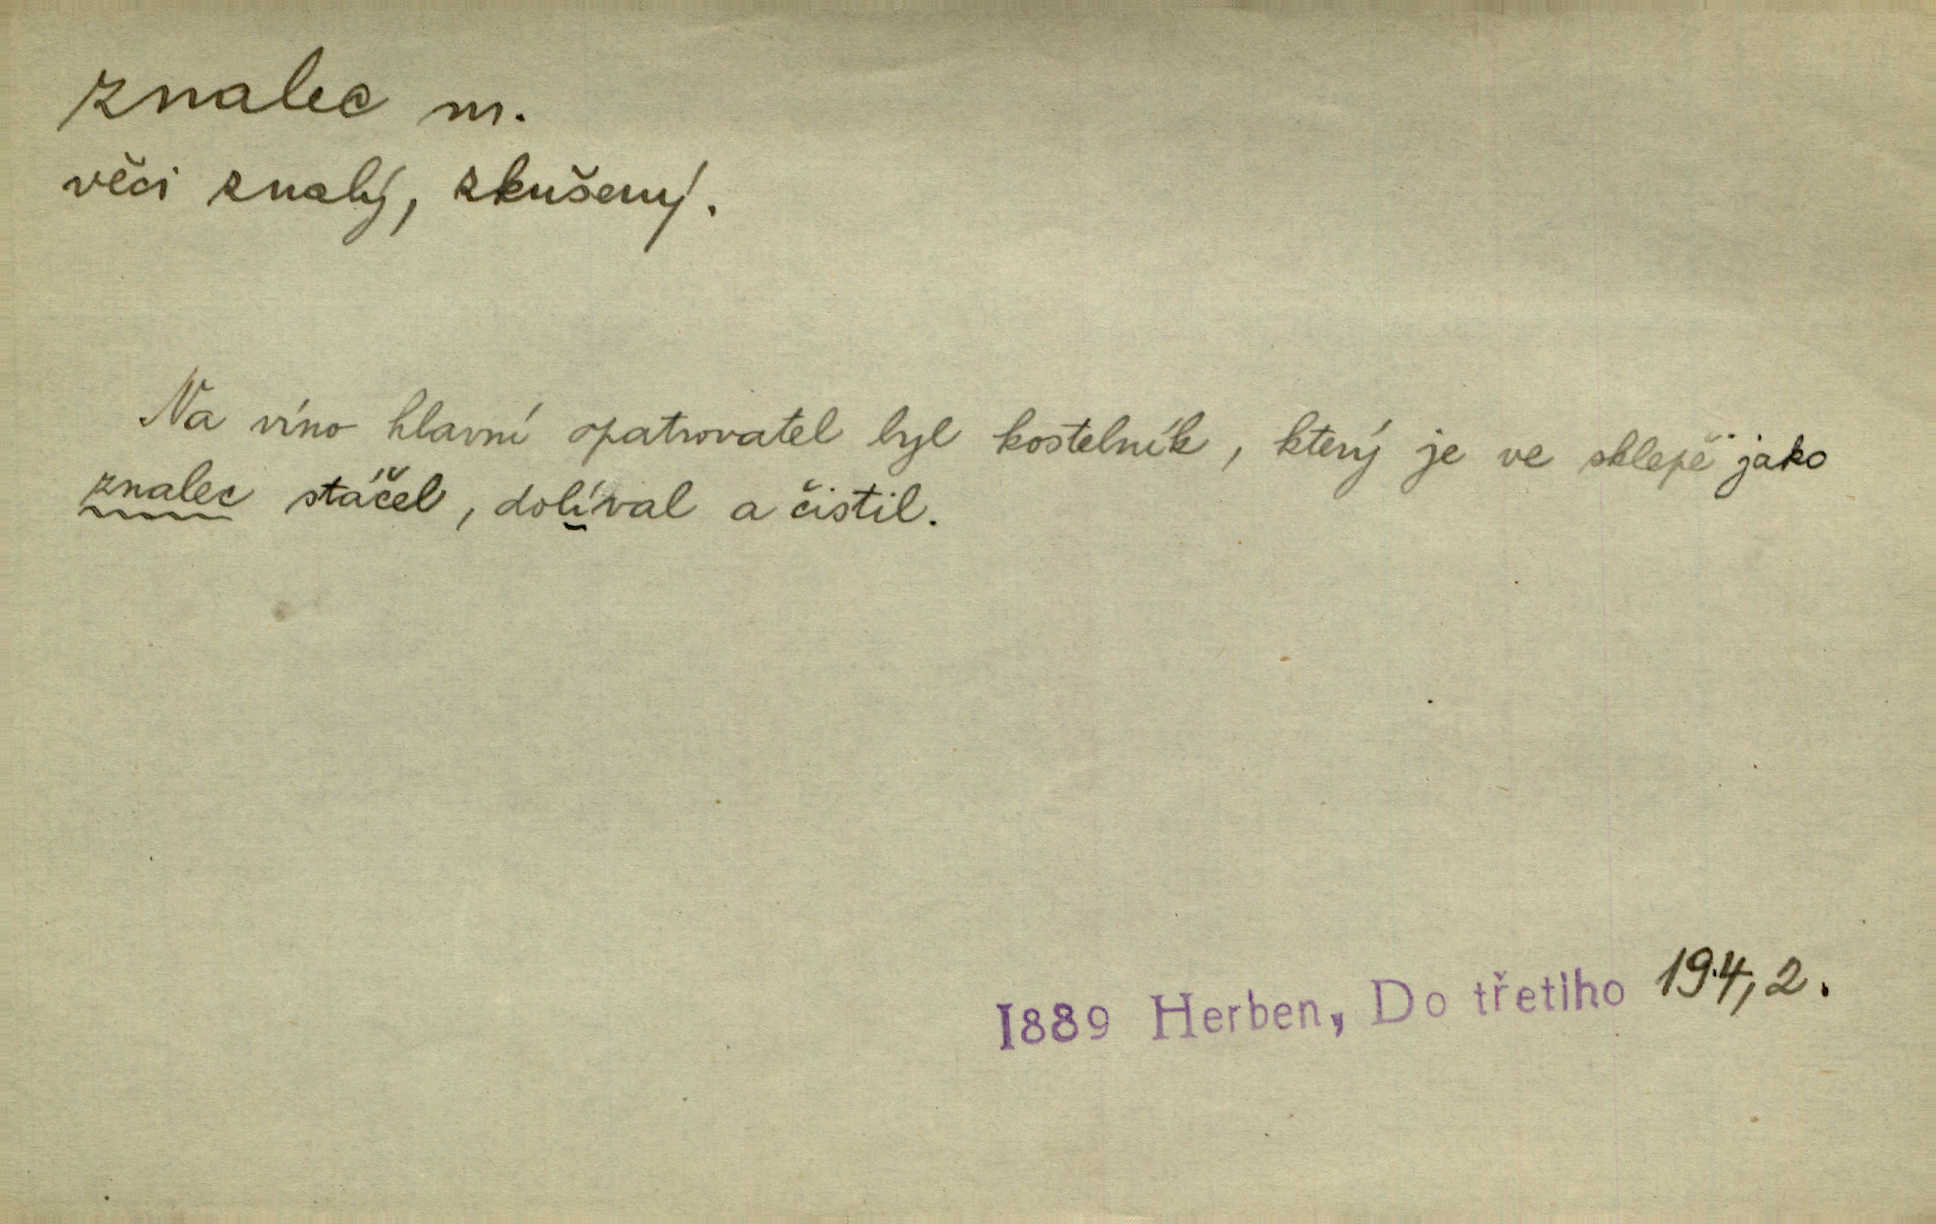 znalec m.
věci znalý, zkušený.
Na víno hlavní opatrovatel byl kostelník, který je ve sklepě jako
znalec stáčel, dolíval a čistil.
1889 Herben, Do třetího 194,2.